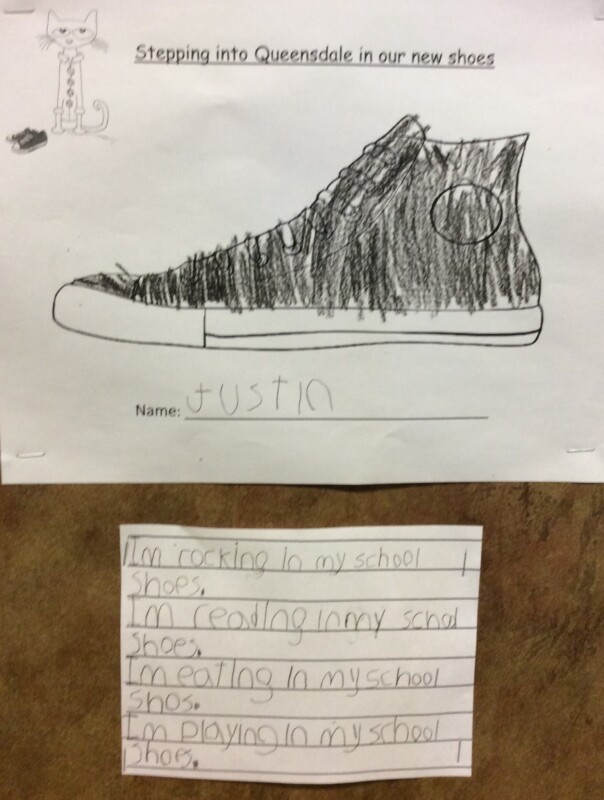 Stepping into Queensdale in our new shoes
Name: JUSTIN
Im rocking in my school
shoes.
Im reading in my schol
shoes.
Im eating in my school
shos.
Im playing in my school
shoes.